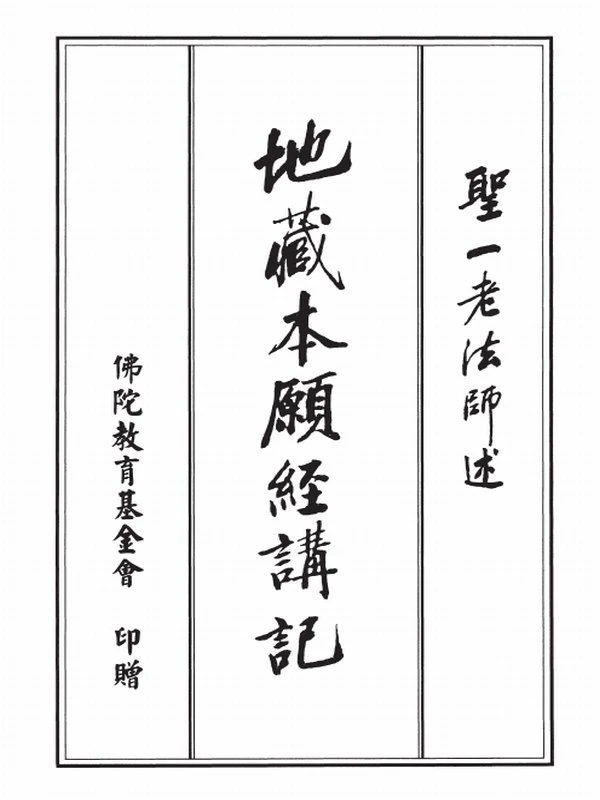 聖一老法師述
地藏本願經講記
佛陀教育基金會 印贈